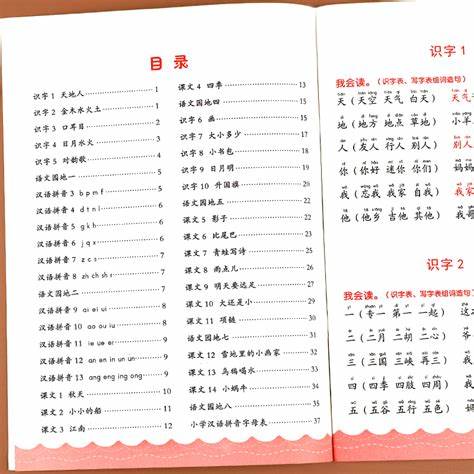 目录
识字 1 天地人 1
识字 2 金木水火土 1
识字 3 口耳目 2
识字 4 日月水火 3
识字 5 对韵歌 4
语文园地一 5
汉语拼音 3 b p m f 5
汉语拼音 4 d t n l 5
汉语拼音 5 g k h 6
汉语拼音 6 j q x 6
汉语拼音 7 z c s 7
汉语拼音 8 zh ch sh r 7
语文园地二 7
汉语拼音 9 ai ei ui
汉语拼音 10 ao ou iu
汉语拼音 11 ie üe er
汉语拼音 12 an en in un ün
汉语拼音 13 ang eng ing ong 9
课文 1 秋天 10
课文 2 小小的船 12
课文 3 江南 12
课文 4 四季 13
语文园地四 15
识字 6 画 15
识字 7 大小多少 17
识字 8 小书包
识字 9 日月明
识字 10 升国旗
语文园地五 22
课文 5 影子 22
课文 6 比尾巴
课文 7 青蛙写诗 25
课文 8 雨点儿
课文 9 明天要远足
课文 10 大还是小
课文 11 项链
语文园地七
课文 12 雪地里的小画家 32
课文 13 乌鸦喝水
课文 14 小蜗牛 35
语文园地八 37
小学汉语拼音字母表 37
识字 1
我会读。（识字表、写字表组词造句）
天（天空 天气 白天） 天气
地（地方 地点 草地） 小羊
人（友人 行人 别人） 别人
你（你好 迷你 你们） 妈妈
我（忘我 我家 自我） 我家
他（他乡 吉他 其他） 他
识字 2
我会读。（识字表、写字表组词造句）
一（专一 第一 一起） 这
二（二月 二胡 二心） 爷
三（三国 三峡 再三）
四（四季 四肢 四周）
五（五谷 五行 五官）